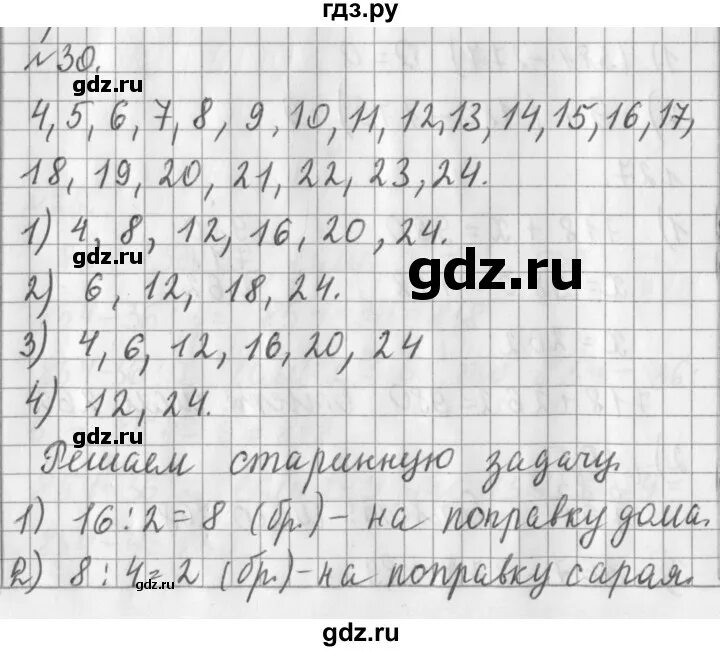 гдз.ру
№30.
gdz.ru
4, 5, 6, 7, 8, 9, 10, 11, 12, 13, 14, 15, 16, 17,
18, 19, 20, 21, 22, 23, 24.
1) 4, 8, 12, 16, 20, 24.
gdz.ru
gdz.ru
2) 6, 12, 18, 24.
3) 4, 6, 12, 16, 20, 24
4) 12, 24.
gdz.ru
Решаем старинную задачу.
1) 16 : 2 = 8 (бр.) - на поправку дома.
2) 8 : 4 = 2 (бр.) - на поправку сарая.
gdz.ru
gdz.ru